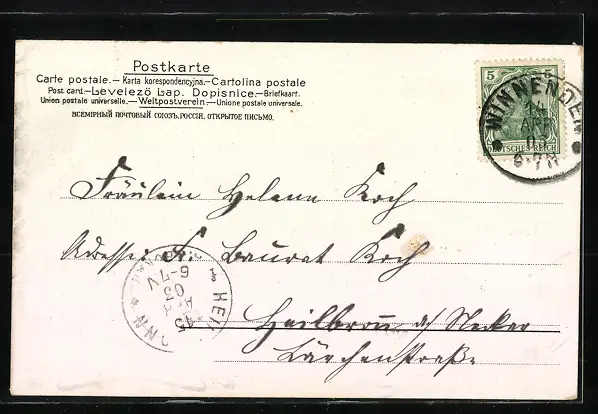 Postkarte
Carte postale.—Karta korespondencyjna.—Cartolina postale
Post card.—Levelező Lap. Dopisnice.—Briefkaart.
Union postale universelle.—Weltpostverein—Unione postale universale.
ВСЕМІРНЫЙ ПОЧТОВЫЙ СОЮЗЪ.РОССІЯ. ОТКРЫТОЕ ПИСЬМО.
5
DEUTSCHES REICH
WINNENDEN
APR
6-7N
Fräulein Helene Koch
Adresse: Fr. Baurat Koch
Heilbronn a/ Neckar
Lärchenstraße
HEI
15
APR
03
6-7V